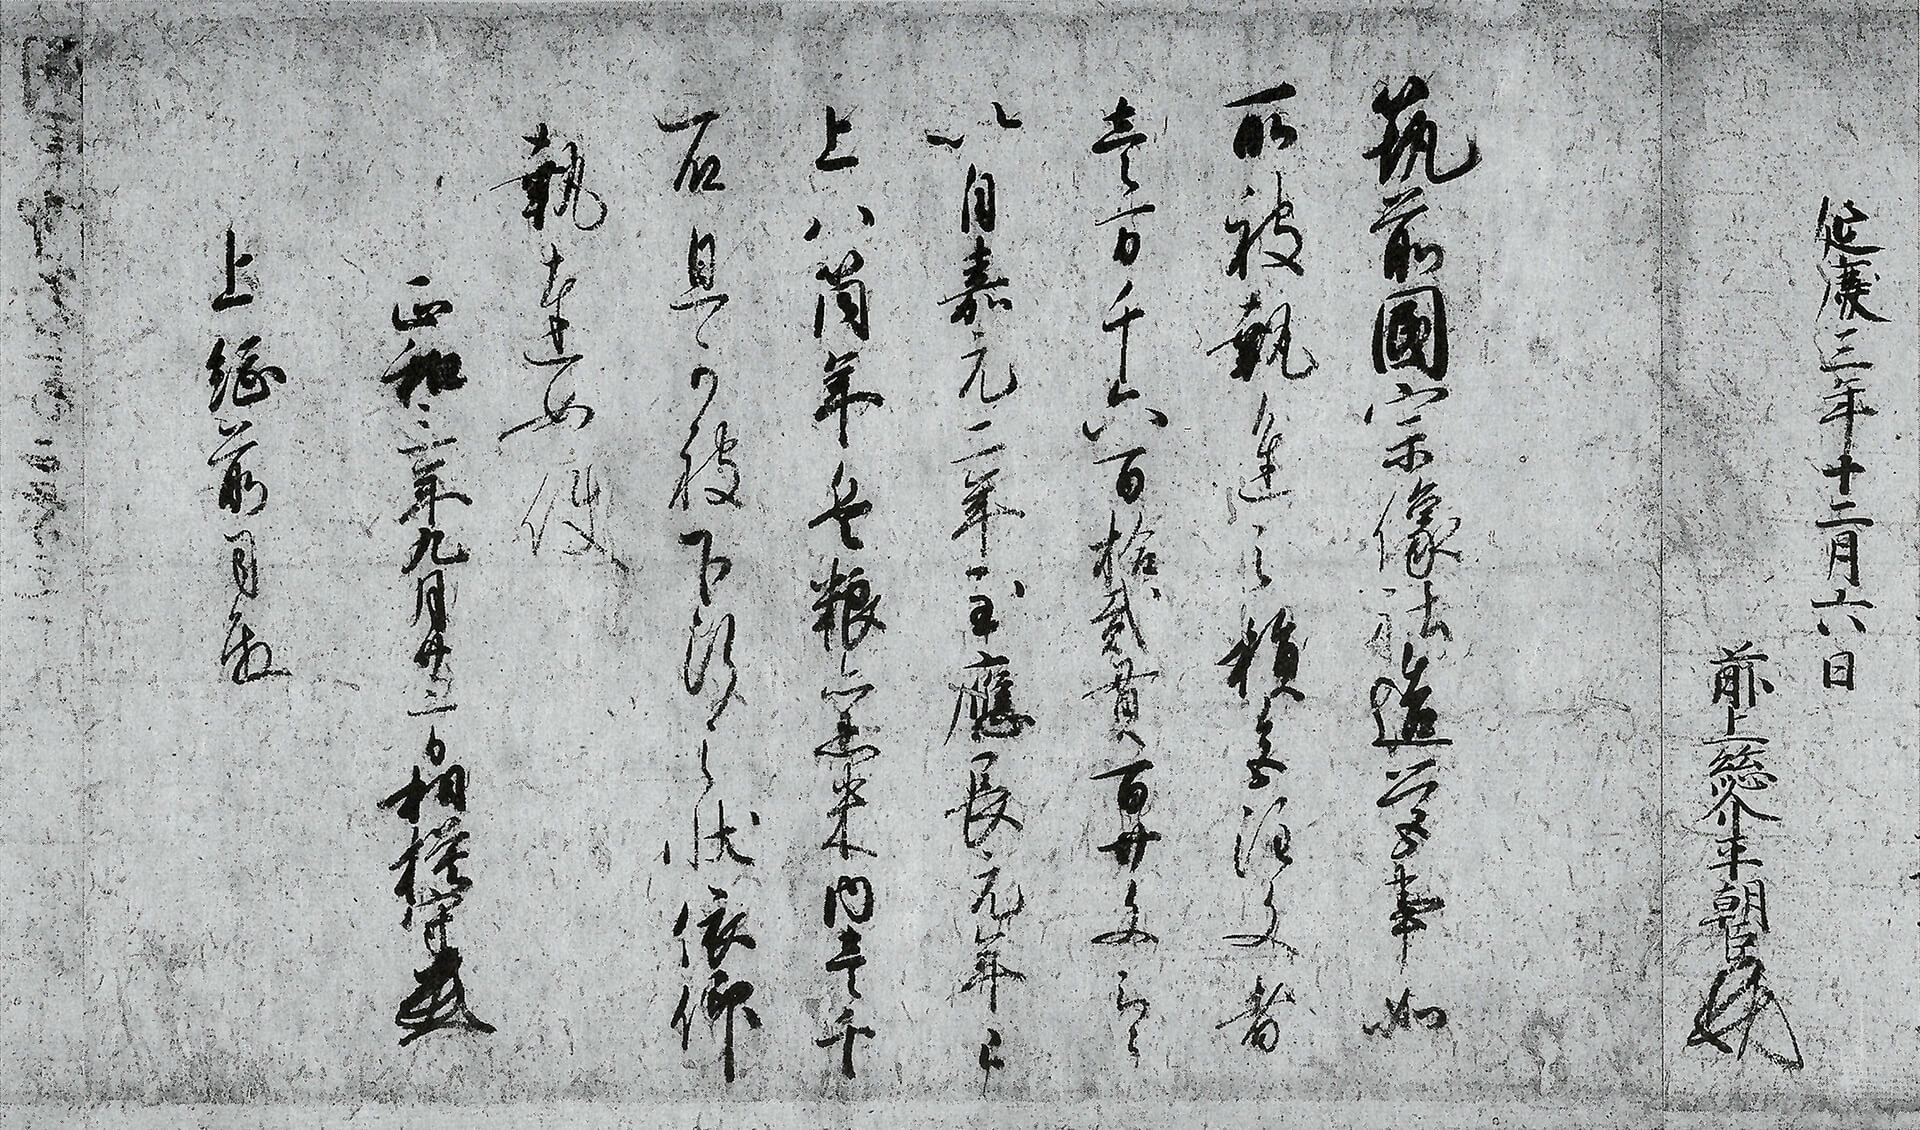 延慶三年十二月六日
前上総介平朝臣
筑前國宗像社造営事如
所被執進之積注文者
壹万千六百拾貳貫百廿文云々
以自嘉元二年至應長元年已
上八箇年兵粮黒米内壹千
石且可被下之状依仰
執達如件
正和二年九月廿三日相模守
上総前司殿